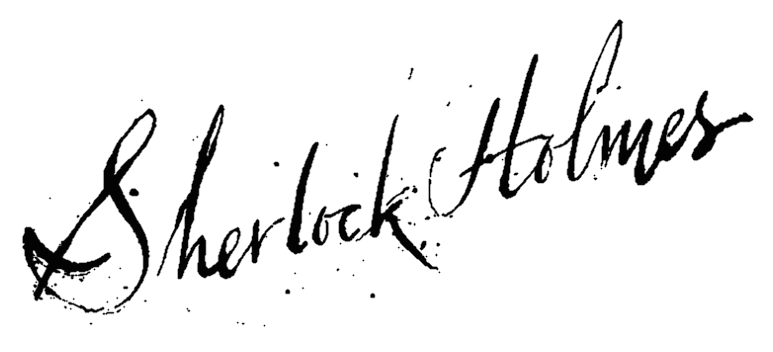 Sherlock Holmes